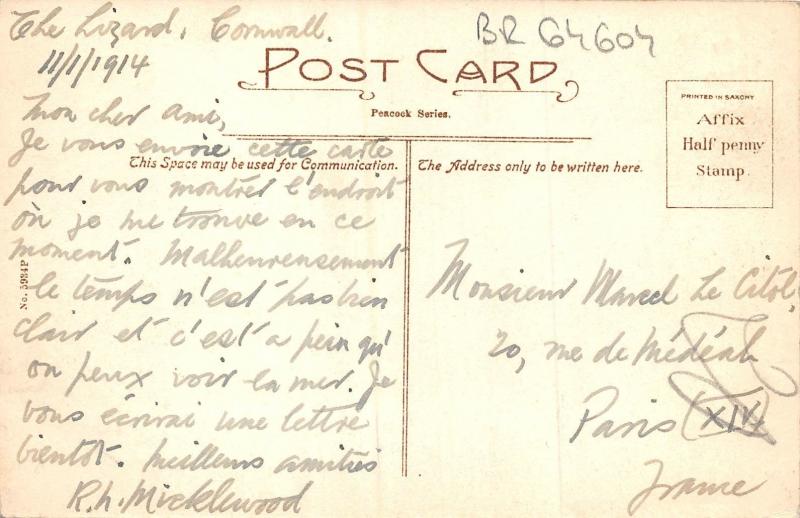 The Lizard, Cornwall.
11/1/1914
BR 64604
POST CARD
Peacock Series.
PRINTED IN SAXONY
Affix
Half penny
Stamp.
This Space may be used for Communication.
The Address only to be written here.
No. 5934P
mon cher ami,
Je vous envoie cette carte
pour vous montrer l'endroit
où je me trouve en ce
moment. Malheureusement
le temps n'est pas bien
clair et c'est a pein qu'
on peux voir la mer. Je
vous écrirai une lettre
bientôt. Meilleurs amitiés
R.H. Micklewood
Monsieur Marcel Le Citol,
20, rue de Médéah
Paris (XIV)
France